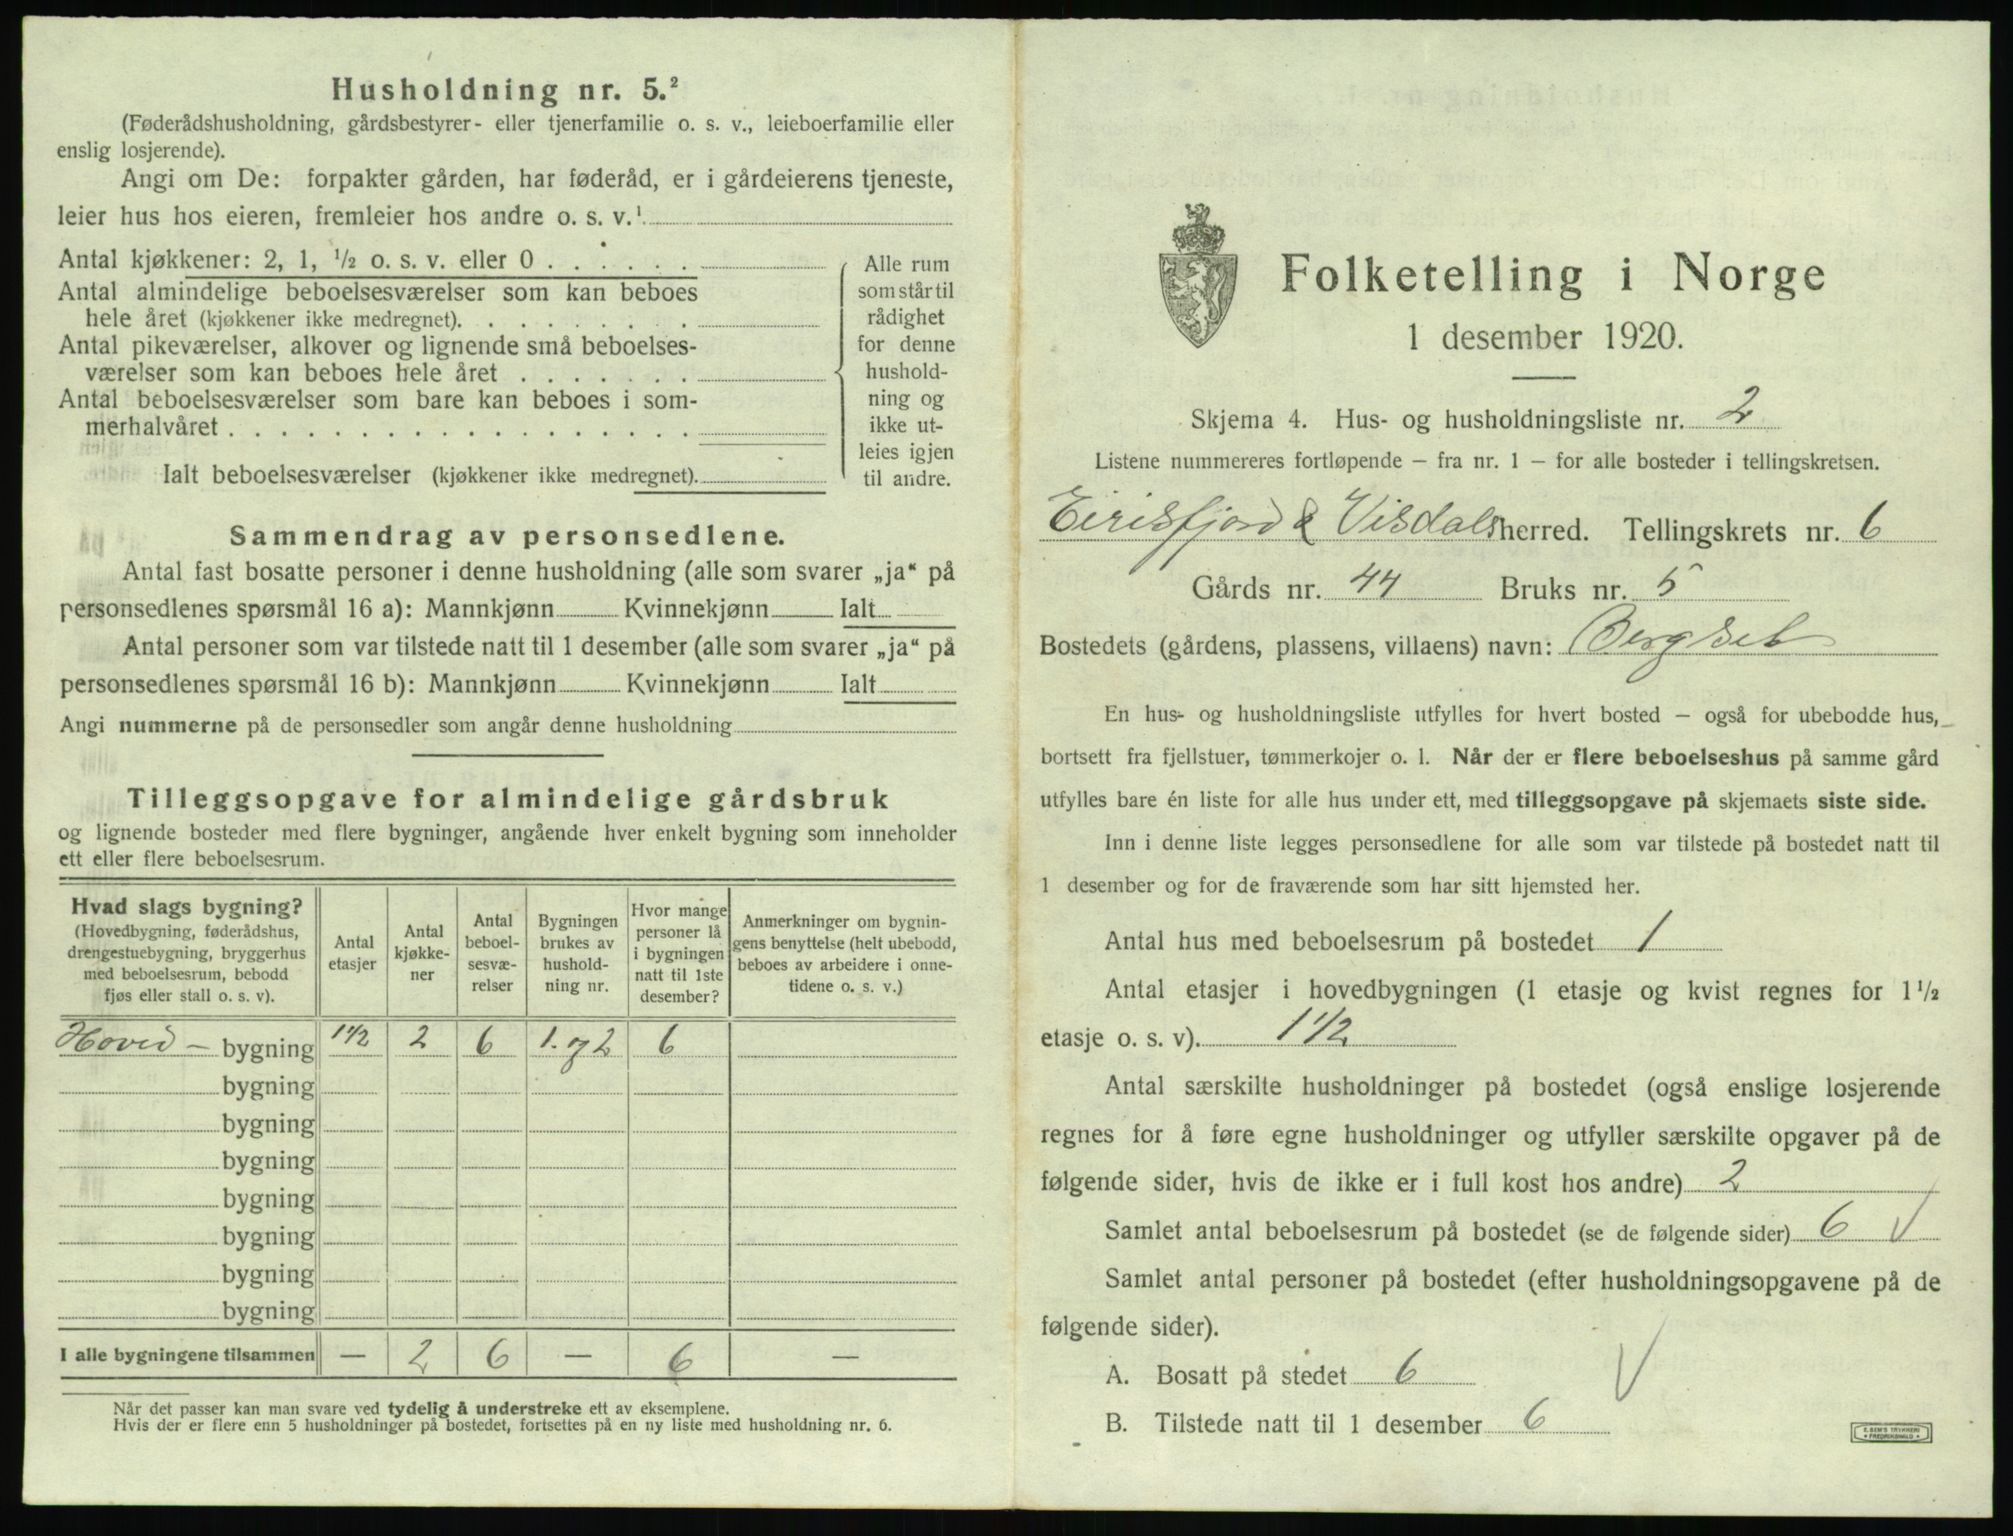 Husholdning nr. 5.²
(Føderådshusholdning, gårdsbestyrer- eller tjenerfamilie o. s. v., leieboerfamilie eller
enslig losjerende).
Angi om De: forpakter gården, har føderåd, er i gårdeierens tjeneste,
leier hus hos eieren, fremleier hos andre o. s. v.¹
Antal kjøkkener: 2, 1, ½ o. s. v. eller 0 . . . . . .
Antal almindelige beboelsesværelser som kan beboes
hele året (kjøkkener ikke medregnet). . . . . . . . .
Antal pikeværelser, alkover og lignende små beboelses-
værelser som kan beboes hele året . . . . . . .
Antal beboelsesværelser som bare kan beboes i som-
merhalvåret . . . . . . . . . . . . . . . . . .
Ialt beboelsesværelser (kjøkkener ikke medregnet).
Alle rum
som står til
rådighet
for denne
hushold-
ning og
ikke ut-
leies igjen
til andre.
Sammendrag av personsedlene.
Antal fast bosatte personer i denne husholdning (alle som svarer „ja“ på
personsedlenes spørsmål 16 a): Mannkjønn Kvinnekjønn Ialt
Antal personer som var tilstede natt til 1 desember (alle som svarer „ja“ på
personsedlenes spørsmål 16 b): Mannkjønn Kvinnekjønn Ialt
Angi nummerne på de personsedler som angår denne husholdning
Tilleggsopgave for almindelige gårdsbruk
og lignende bosteder med flere bygninger, angående hver enkelt bygning som inneholder
ett eller flere beboelsesrum.
Hvad slags bygning?
(Hovedbygning, føderådshus,
drengestuebygning, bryggerhus
med beboelsesrum, bebodd
fjøs eller stall o. s. v).
Antal
etasjer
Antal
kjøkke-
ner
Antal
beboel-
sesvæ-
relser
Bygningen
brukes av
hushold-
ning nr.
Hvor mange
personer lå
i bygningen
natt til 1ste
desember?
Anmerkninger om bygnin-
gens benyttelse (helt ubebodd,
beboes av arbeidere i onne-
tidene o. s. v.)
Hoved - bygning 1½ 2 6 1. og 2 6
bygning
bygning
bygning
bygning
bygning
bygning
bygning
I alle bygningene tilsammen — 2 6 — 6 —
Når det passer kan man svare ved tydelig å understreke ett av eksemplene.
Hvis der er flere enn 5 husholdninger på bostedet, fortsettes på en ny liste med husholdning nr. 6.
Folketelling i Norge
1 desember 1920.
Skjema 4. Hus- og husholdningsliste nr. 2
Listene nummereres fortløpende – fra nr. 1 – for alle bosteder i tellingskretsen.
Eirisfjord & Visdals herred. Tellingskrets nr. 6
Gårds nr. 44 Bruks nr. 5
Bostedets (gårdens, plassens, villaens) navn: Bergset
En hus- og husholdningsliste utfylles for hvert bosted – også for ubebodde hus,
bortsett fra fjellstuer, tømmerkojer o. l. Når der er flere beboelseshus på samme gård
utfylles bare én liste for alle hus under ett, med tilleggsopgave på skjemaets siste side.
Inn i denne liste legges personsedlene for alle som var tilstede på bostedet natt til
1 desember og for de fraværende som har sitt hjemsted her.
Antal hus med beboelsesrum på bostedet 1
Antal etasjer i hovedbygningen (1 etasje og kvist regnes for 1½
etasje o. s. v). 1½
Antal særskilte husholdninger på bostedet (også enslige losjerende
regnes for å føre egne husholdninger og utfyller særskilte opgaver på de
følgende sider, hvis de ikke er i full kost hos andre) 2
Samlet antal beboelsesrum på bostedet (se de følgende sider) 6 V
Samlet antal personer på bostedet (efter husholdningsopgavene på de
følgende sider).
A. Bosatt på stedet 6 V
B. Tilstede natt til 1 desember 6